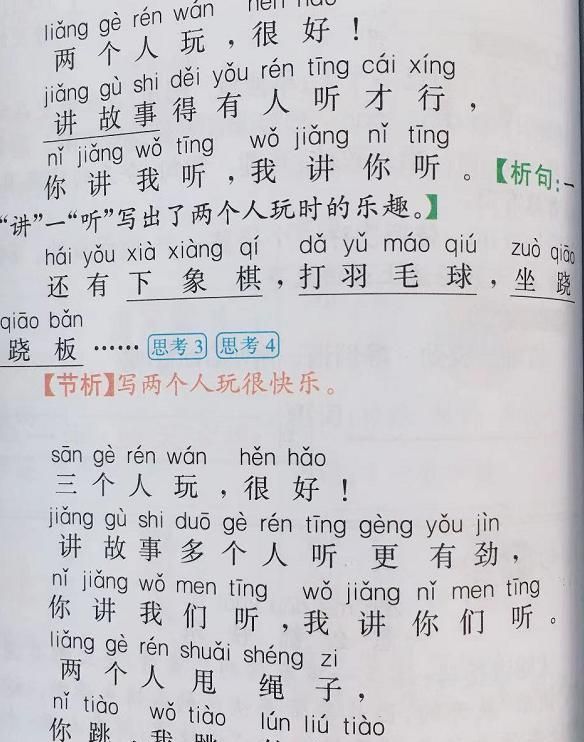 liǎng gè rén wán hěn hǎo
两个人玩，很好！
jiǎng gù shi děi yǒu rén tīng cái xíng
讲故事得有人听才行，
nǐ jiǎng wǒ tīng wǒ jiǎng nǐ tīng
你讲我听，我讲你听。【析句:一
“讲”一“听”写出了两个人玩时的乐趣。】
hái yǒu xià xiàng qí dǎ yǔ máo qiú zuò qiāo
还有下象棋，打羽毛球，坐跷
qiāo bǎn
跷板……思考3 思考4
【节析】写两个人玩很快乐。
sān gè rén wán hěn hǎo
三个人玩，很好！
jiǎng gù shi duō gè rén tīng gèng yǒu jìn
讲故事多个人听更有劲，
nǐ jiǎng wǒ men tīng wǒ jiǎng nǐ men tīng
你讲我们听，我讲你们听。
liǎng gè rén shuǎi shéng zi
两个人甩绳子，
nǐ tiào wǒ tiào lún liú tiào
你跳，我跳